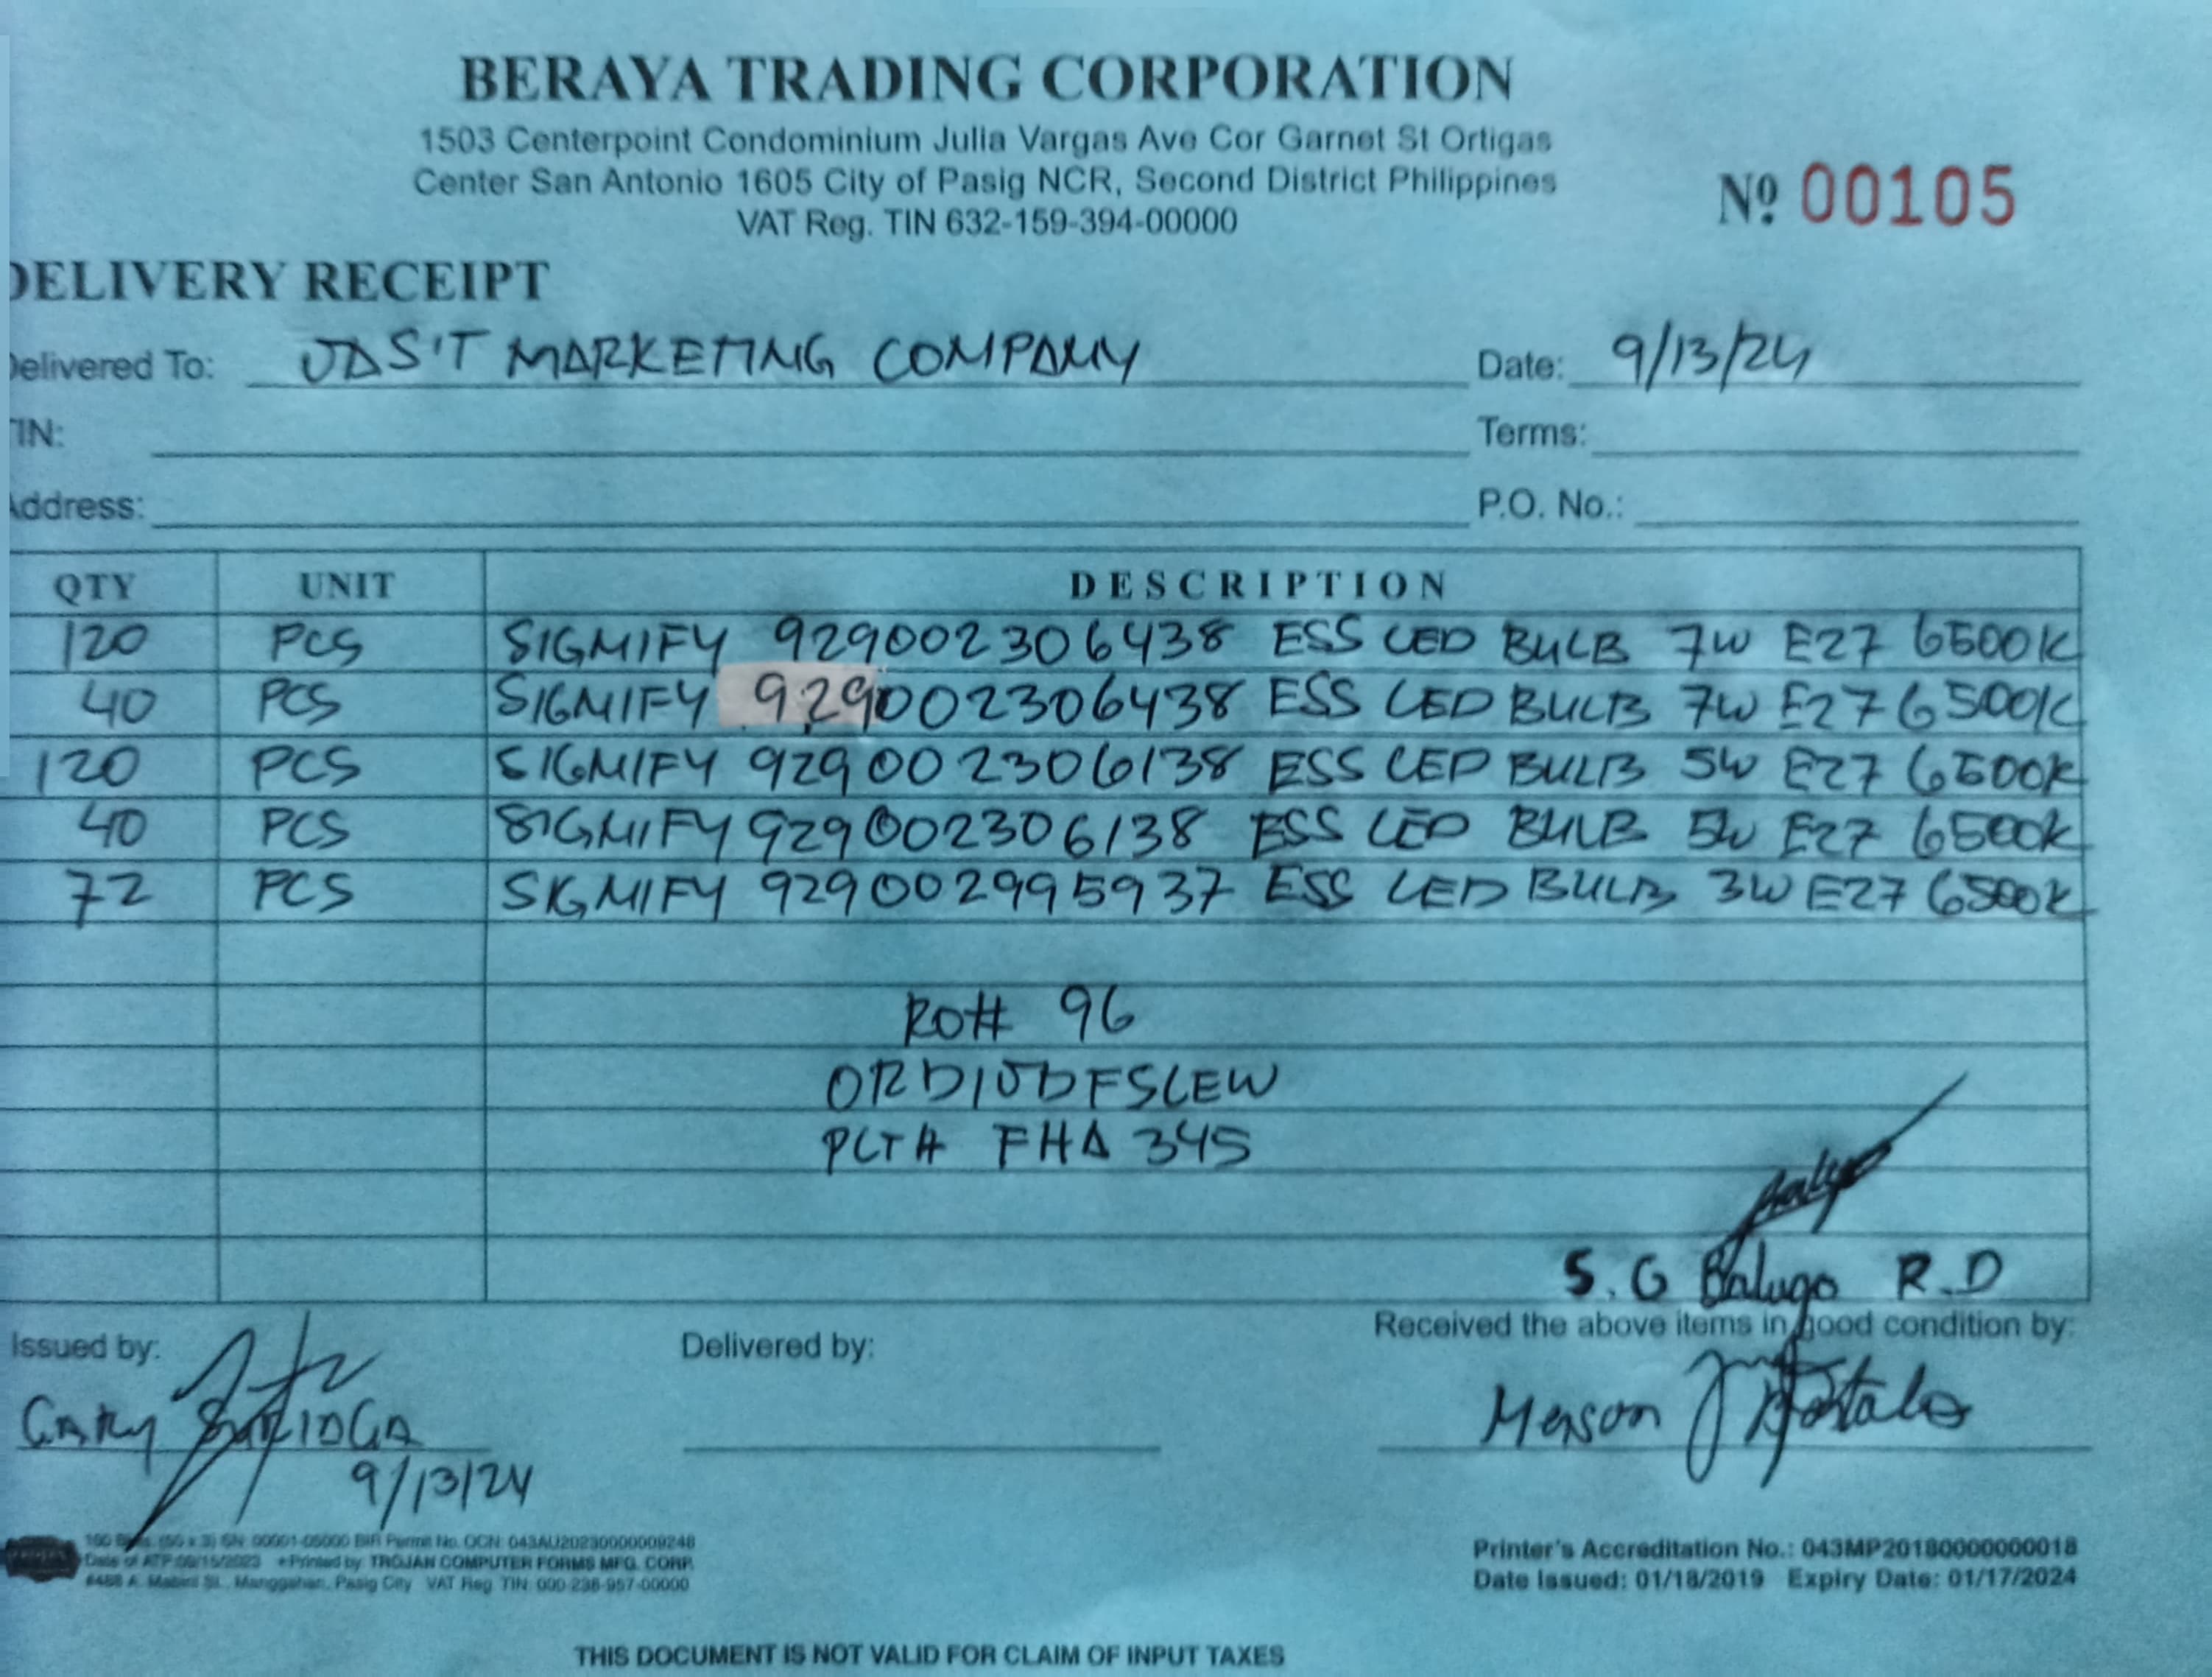 BERAYA TRADING CORPORATION
1503 Centerpoint Condominium Julia Vargas Ave Cor Garnet St Ortigas
Center San Antonio 1605 City of Pasig NCR, Second District Philippines
VAT Reg. TIN 632-159-394-00000
Nº 00105
DELIVERY RECEIPT
Delivered To: JAS'T MARKETING COMPANY Date: 9/13/24
TIN: Terms:
Address: P.O. No.:
QTY UNIT DESCRIPTION
120 PCS SIGNIFY 929002306438 ESS LED BULB 7W E27 6500K
40 PCS SIGNIFY 929002306438 ESS LED BULB 7W E27 6500K
120 PCS SIGNIFY 929002306138 ESS LED BULB 5W E27 6500K
40 PCS SIGNIFY 929002306138 ESS LED BULB 5W E27 6500K
72 PCS SIGNIFY 929002995937 ESS LED BULB 3W E27 6500K
RO# 96
ORD1JDFSLEW
PLT# FHA 345
S.G Balugo R.D
Issued by: Delivered by: Received the above items in good condition by:
GARY Merson
9/13/24
(50 x 3) SN: 00001-05000 BIR Permit No. OCN: 043AU20230000009248
Date of ATP 09/15/2023 Printed by: TROJAN COMPUTER FORMS MFG. CORP.
A. Mabini St., Manggahan, Pasig City VAT Reg TIN: 000-238-957-00000
Printer's Accreditation No.: 043MP20180000000018
Date Issued: 01/18/2019 Expiry Date: 01/17/2024
THIS DOCUMENT IS NOT VALID FOR CLAIM OF INPUT TAXES